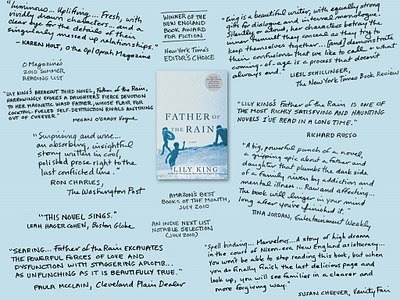 "Luminous... Uplifting... Fresh, with
vividly drawn characters... and a
clear eye for the details of their
singularly messed up relationships."
- KAREN HOLT, O the Oprah Magazine
O Magazine's
2010 SUMMER
READING LIST
"LILY KING'S BRILLIANT THIRD NOVEL, Father of the Rain,
HARROWINGLY EVOKES A DAUGHTER'S FIERCE DEVOTION
TO HER MAGNETIC WASP FATHER, WHOSE FLAIR FOR
CHEERFUL SELF-DESTRUCTION RIVALS ANYTHING
OUT OF CHEEVER."
MEGAN O'GRADY Vogue
"Surprising and wise...
an absorbing, insightful
story written in cool,
polished prose right to the
last conflicted line."
RON CHARLES,
The Washington Post
"THIS NOVEL SINGS."
LEAH HAGER COHEN, Boston Globe
"SEARING... Father of the Rain EXCAVATES
THE POWERFUL FORCES OF LOVE AND
DYSFUNCTION WITH STAGGERING APLOMB...
AS UNFLINCHING AS IT IS BEAUTIFULLY TRUE."
PAULA MCCLAIN, Cleveland Plain Dealer
WINNER OF THE
NEW ENGLAND
BOOK AWARD
FOR FICTION
New York Times
EDITOR'S CHOICE
FATHER OF
THE RAIN
LILY KING
AMAZON'S BEST
BOOKS OF THE MONTH,
JULY 2010
AN INDIE NEXT LIST
NOTABLE SELECTION
(JULY 2010)
"King is a beautiful writer, with equally strong
gifts for dialogue and internal monologue.
Silently or aloud, her characters betray the
inner tumult they conceal as they try to
keep themselves together... [and] demonstrate
their confusion that we like to call
coming-of-age is a process that doesn't
always end."
LIESL SCHILLINGER,
The New York Times Book Review
"LILY KING'S Father of the Rain IS ONE OF
THE MOST RICHLY SATISFYING AND HAUNTING
NOVELS I'VE READ IN A LONG TIME."
RICHARD RUSSO
"A big, powerful punch of a novel,
a gripping epic about a father and
daughter that plumbs the dark side
of a family riven by addiction and
mental illness... Raw and affecting...
The book will linger in your mind
long after you've finished it."
TINA JORDAN, Entertainment Weekly
"Spellbinding... Marvelous... A story of high drama
in the court of Nixon-era New England aristocracy...
You won't be able to stop reading this book, but when
you do finally finish the last delicious page and
look up, you will see families in a clearer and
more forgiving way."
SUSAN CHEEVER, Vanity Fair